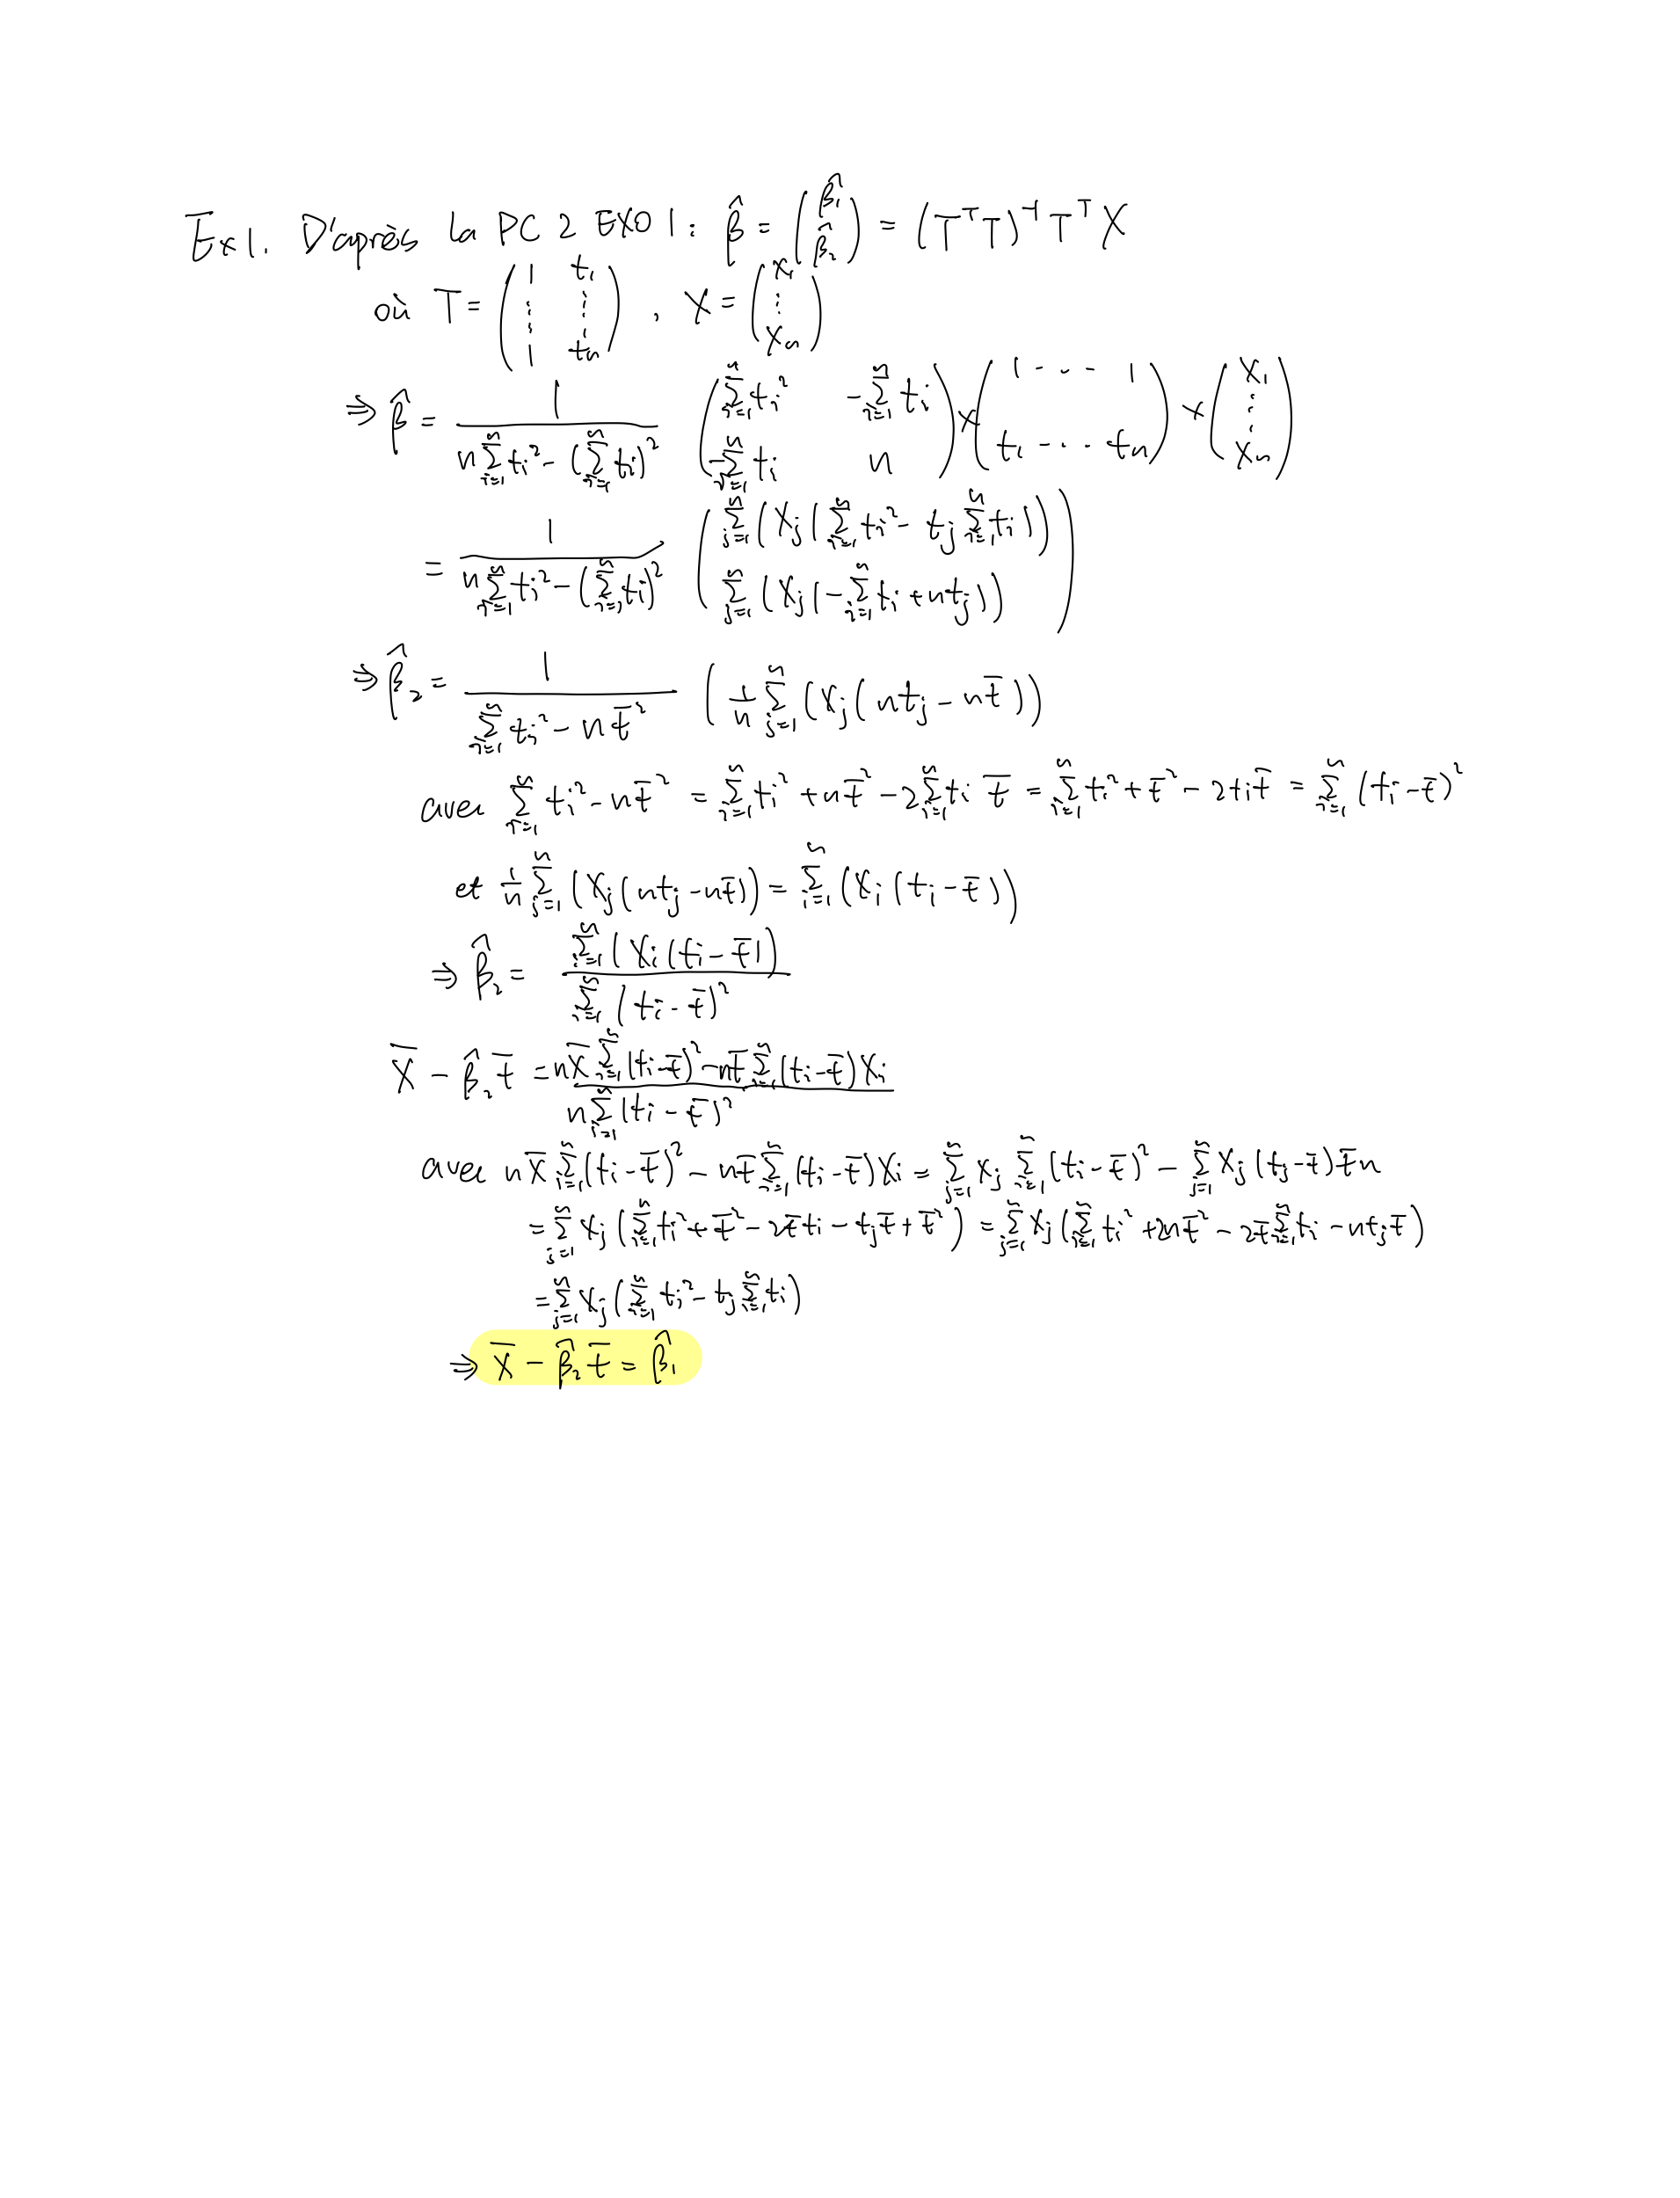 Ex1. D'après la PC 2 EXO 1 : β̂ = (β̂₁ β̂₂) = (TᵀT)⁻¹ Tᵀ X
où T = (1 t₁ ⋮ ⋮ 1 tₙ) , X = (X₁ ⋮ Xₙ)
⇒ β̂ = 1 / (n∑ᵢ₌₁ⁿ tᵢ² − (∑ᵢ₌₁ⁿ tᵢ)²) (∑ᵢ₌₁ⁿ tᵢ² −∑ᵢ₌₁ⁿ tᵢ −∑ᵢ₌₁ⁿ tᵢ n) × (1 ... 1 t₁ ... tₙ) × (X₁ ⋮ Xₙ)
= 1 / (n∑ᵢ₌₁ⁿ tᵢ² − (∑ᵢ₌₁ⁿ tᵢ)²) (∑ⱼ₌₁ⁿ (Xⱼ(∑ᵢ₌₁ⁿ tᵢ² − tⱼ∑ᵢ₌₁ⁿ tᵢ)) ∑ⱼ₌₁ⁿ (Xⱼ(−∑ᵢ₌₁ⁿ tᵢ + ntⱼ)))
⇒ β̂₂ = 1 / (∑ᵢ₌₁ⁿ tᵢ² − nt̄²) (1/n ∑ⱼ₌₁ⁿ (Xⱼ(ntⱼ − nt̄))
avec ∑ᵢ₌₁ⁿ tᵢ² − nt̄² = ∑ᵢ₌₁ⁿ tᵢ² + nt̄² − 2∑ᵢ₌₁ⁿ tᵢ t̄ = ∑ᵢ₌₁ⁿ tᵢ² + t̄² − 2tᵢt̄ = ∑ᵢ₌₁ⁿ (tᵢ − t̄)²
et 1/n ∑ⱼ₌₁ⁿ (Xⱼ(ntⱼ − nt̄)) = ∑ᵢ₌₁ⁿ (Xᵢ(tᵢ − t̄))
⇒ β̂₂ = ∑ᵢ₌₁ⁿ (Xᵢ(tᵢ − t̄)) / ∑ᵢ₌₁ⁿ (tᵢ − t̄)²
X̄ − β̂₂t̄ = (nX̄∑ᵢ₌₁ⁿ (tᵢ − t̄)² − nt̄∑ᵢ₌₁ⁿ (tᵢ − t̄)Xᵢ) / (n∑ᵢ₌₁ⁿ (tᵢ − t̄)²)
avec nX̄∑ᵢ₌₁ⁿ (tᵢ − t̄)² − nt̄∑ᵢ₌₁ⁿ (tᵢ − t̄)Xᵢ = ∑ⱼ₌₁ⁿ Xⱼ ∑ᵢ₌₁ⁿ (tᵢ − t̄)² − ∑ⱼ₌₁ⁿ Xⱼ(tⱼ − t̄)t̄n
= ∑ⱼ₌₁ⁿ Xⱼ(∑ᵢ₌₁ⁿ tᵢ² + t̄² − 2t̄tᵢ − tⱼt̄ + t̄²) = ∑ⱼ₌₁ⁿ Xⱼ(∑ᵢ₌₁ⁿ tᵢ² + 2nt̄² − 2t̄∑ᵢ₌₁ⁿ tᵢ − ntⱼt̄)
= ∑ⱼ₌₁ⁿ Xⱼ(∑ᵢ₌₁ⁿ tᵢ² − tⱼ∑ᵢ₌₁ⁿ tᵢ)
⇒ X̄ − β̂₂t̄ = β̂₁